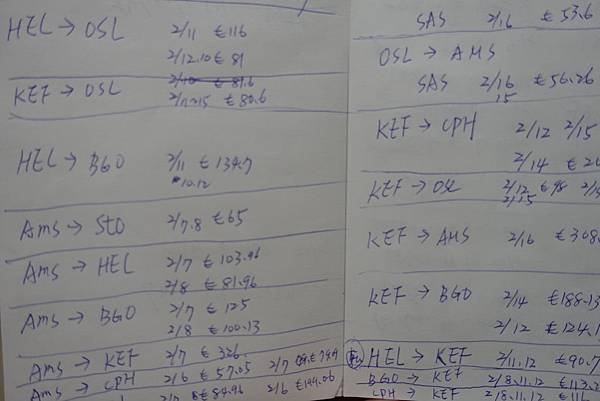 HEL → OSL 2/11 €116
2/12.10 €81
2/10 €81.6
KEF → OSL 2/11~15 €80.6
HEL → BGO 2/11 €134.7
10.12
AMS → STO 2/7.8 €65
AMS → HEL 2/7 €103.96
2/8 €81.96
AMS → BGO 2/7 €125
2/8 €100.13
AMS → KEF 2/7 €326.
AMS → CPH 2/6 €57.05 2/7
2/6 €144.06
SAS 2/16 €53.6
OSL → AMS
SAS 2/16 €56.26
15
KEF → CPH 2/12 2/15
2/14
KEF → OSL 2/12 €98
2/15
KEF → AMS 2/16 €308.
KEF → BGO 2/14 €188.13
2/12 €124.1
HEL → KEF 2/11.12 €90.7
BGO → KEF 2/8.11.12 €113.2
CPH → KEF 2/8.11.12 €116